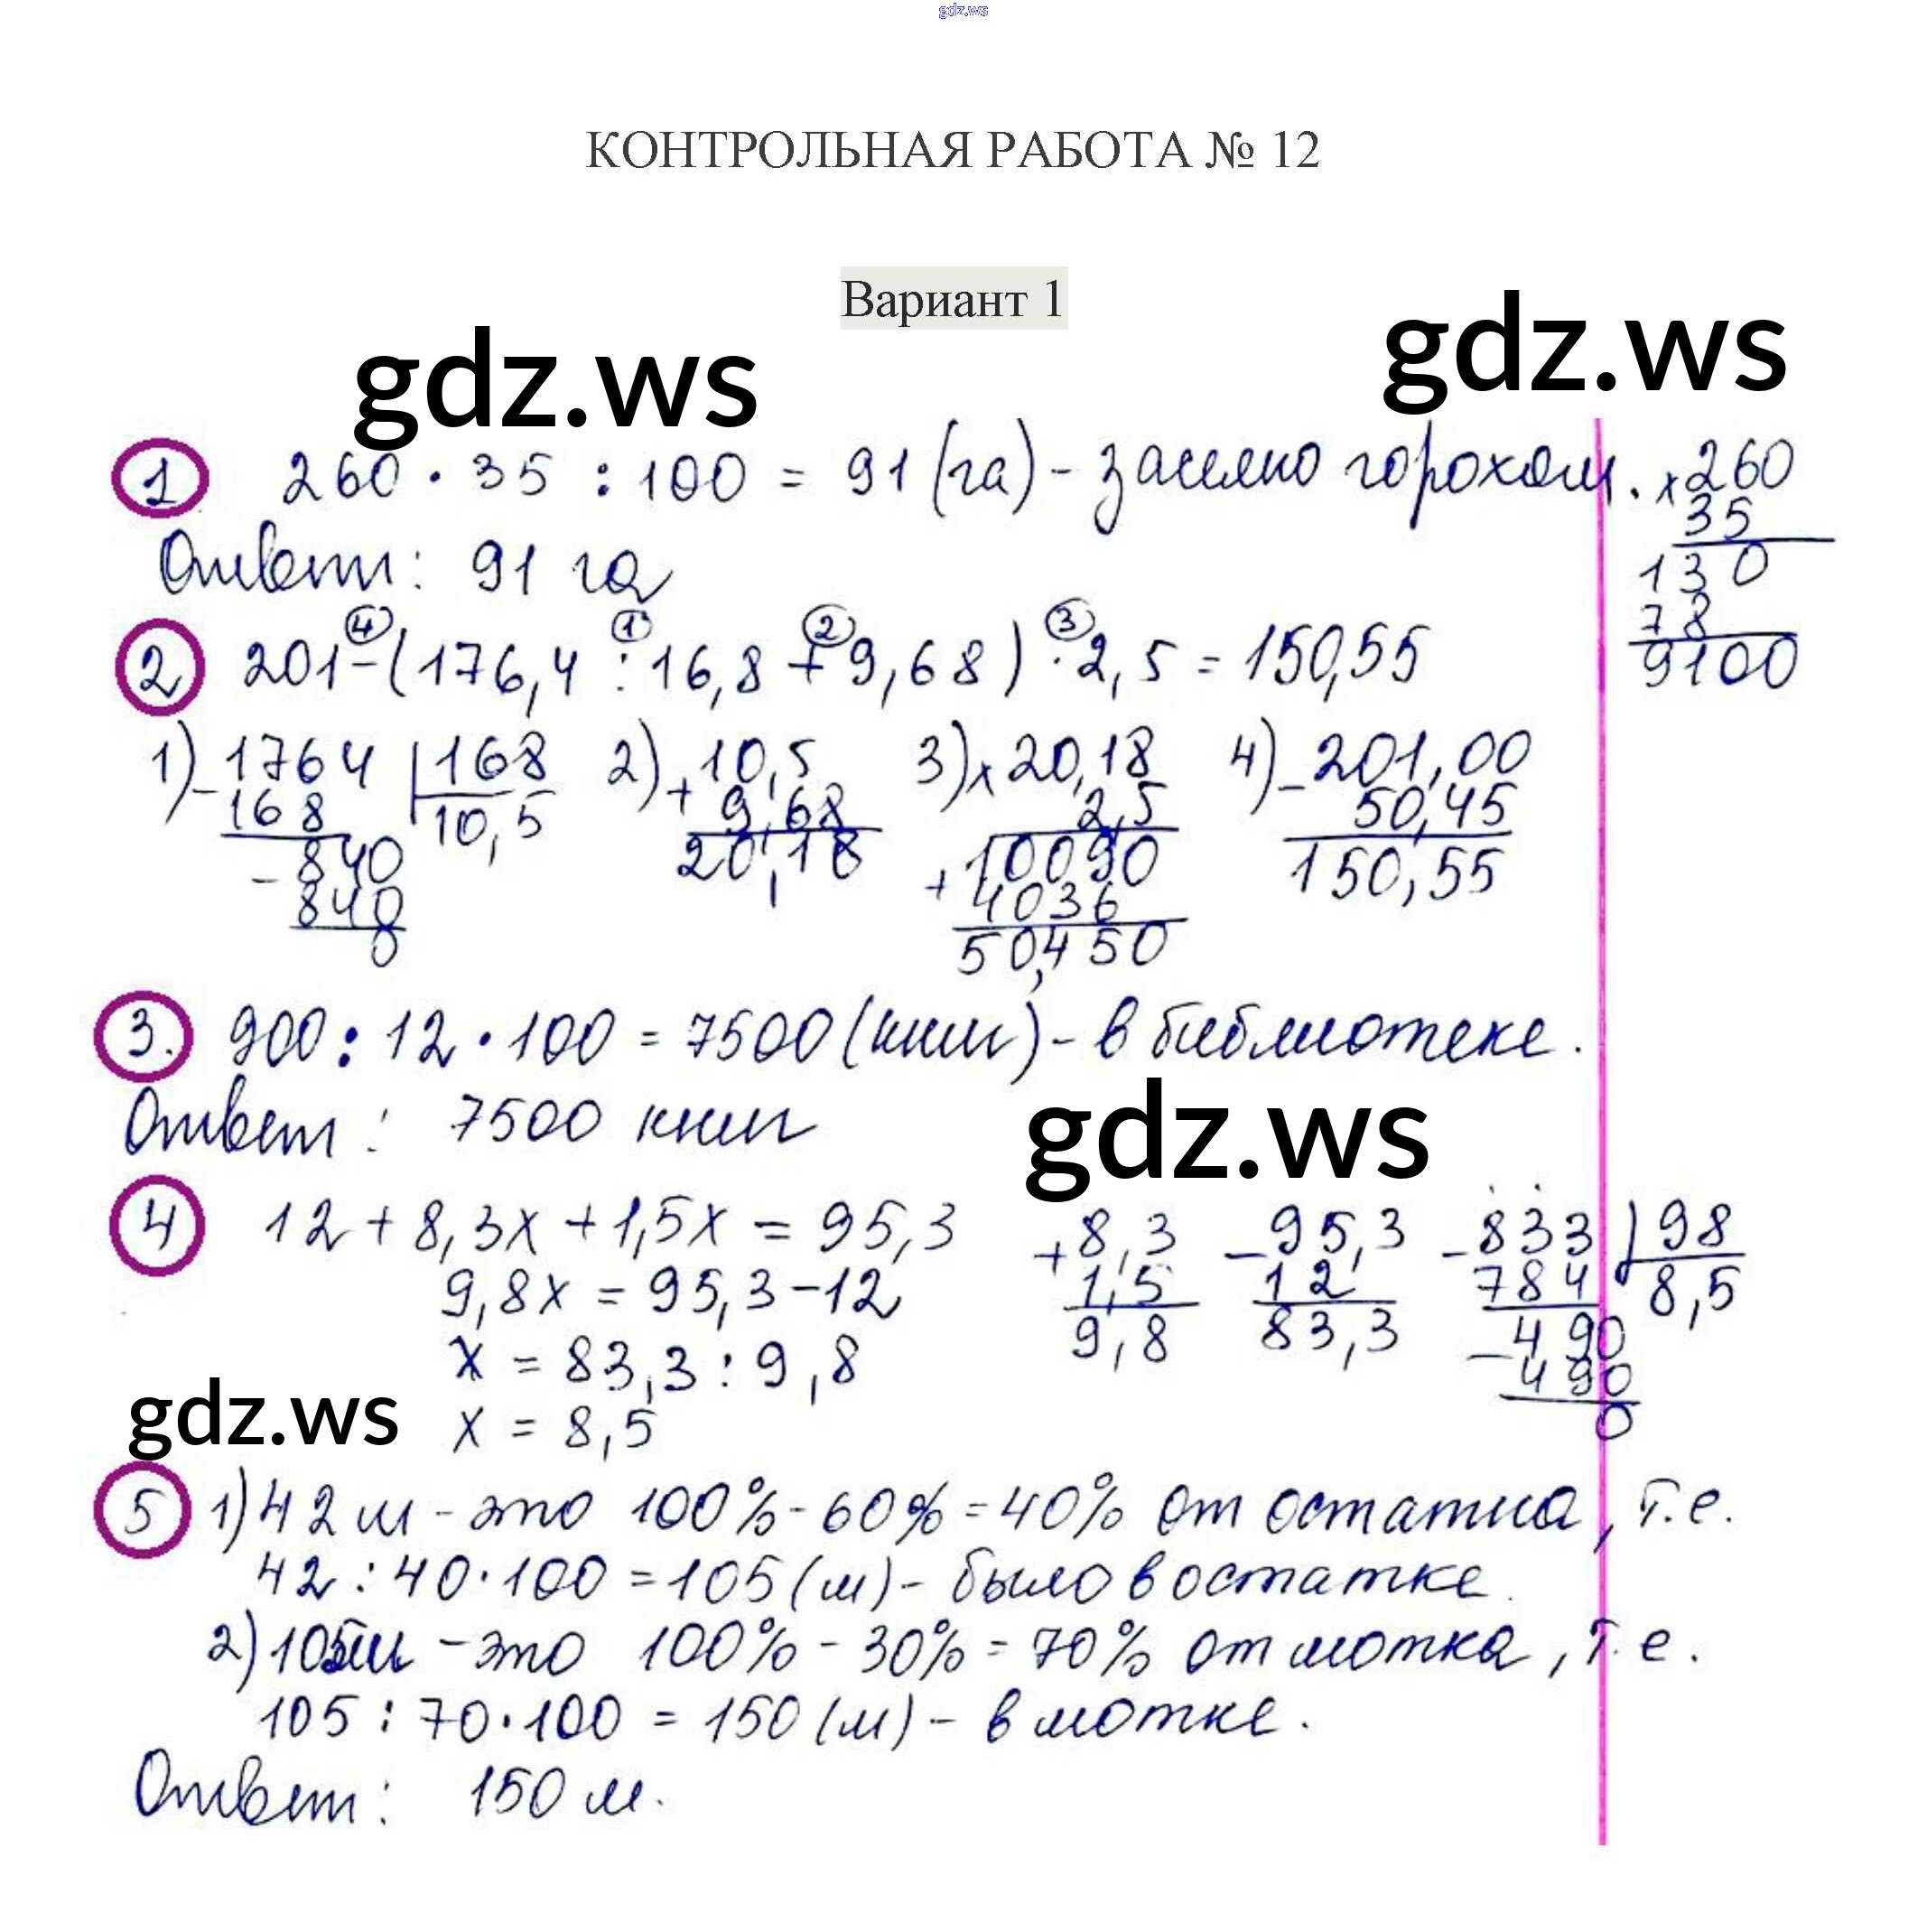 gdz.ws
КОНТРОЛЬНАЯ РАБОТА № 12
Вариант 1
gdz.ws gdz.ws
1 260 · 35 : 100 = 91 (га) - засеяно горохом. × 260
35
130
78
9100
Ответ: 91 га
4 1 2 3
2 201 - (176,4 : 16,8 + 9,68) · 2,5 = 150,55
1) - 1764 | 168 2) + 10,5 3) × 20,18 4) - 201,00
168 10,5 9,68 2,5 50,45
- 840 20,18 + 10090 150,55
840 4036
0 50,450
3. 900 : 12 · 100 = 7500 (книг) - в библиотеке.
Ответ: 7500 книг
gdz.ws
4 12 + 8,3x + 1,5x = 95,3 + 8,3 - 95,3 - 833 | 98
9,8x = 95,3 - 12 1,5 12 784 8,5
x = 83,3 : 9,8 9,8 83,3 - 490
490
x = 8,5 0
gdz.ws
5 1) 42 м - это 100% - 60% = 40% от остатка, т.е.
42 : 40 · 100 = 105 (м) - было в остатке.
2) 105м - это 100% - 30% = 70% от мотка, т.е.
105 : 70 · 100 = 150 (м) - в мотке.
Ответ: 150 м.